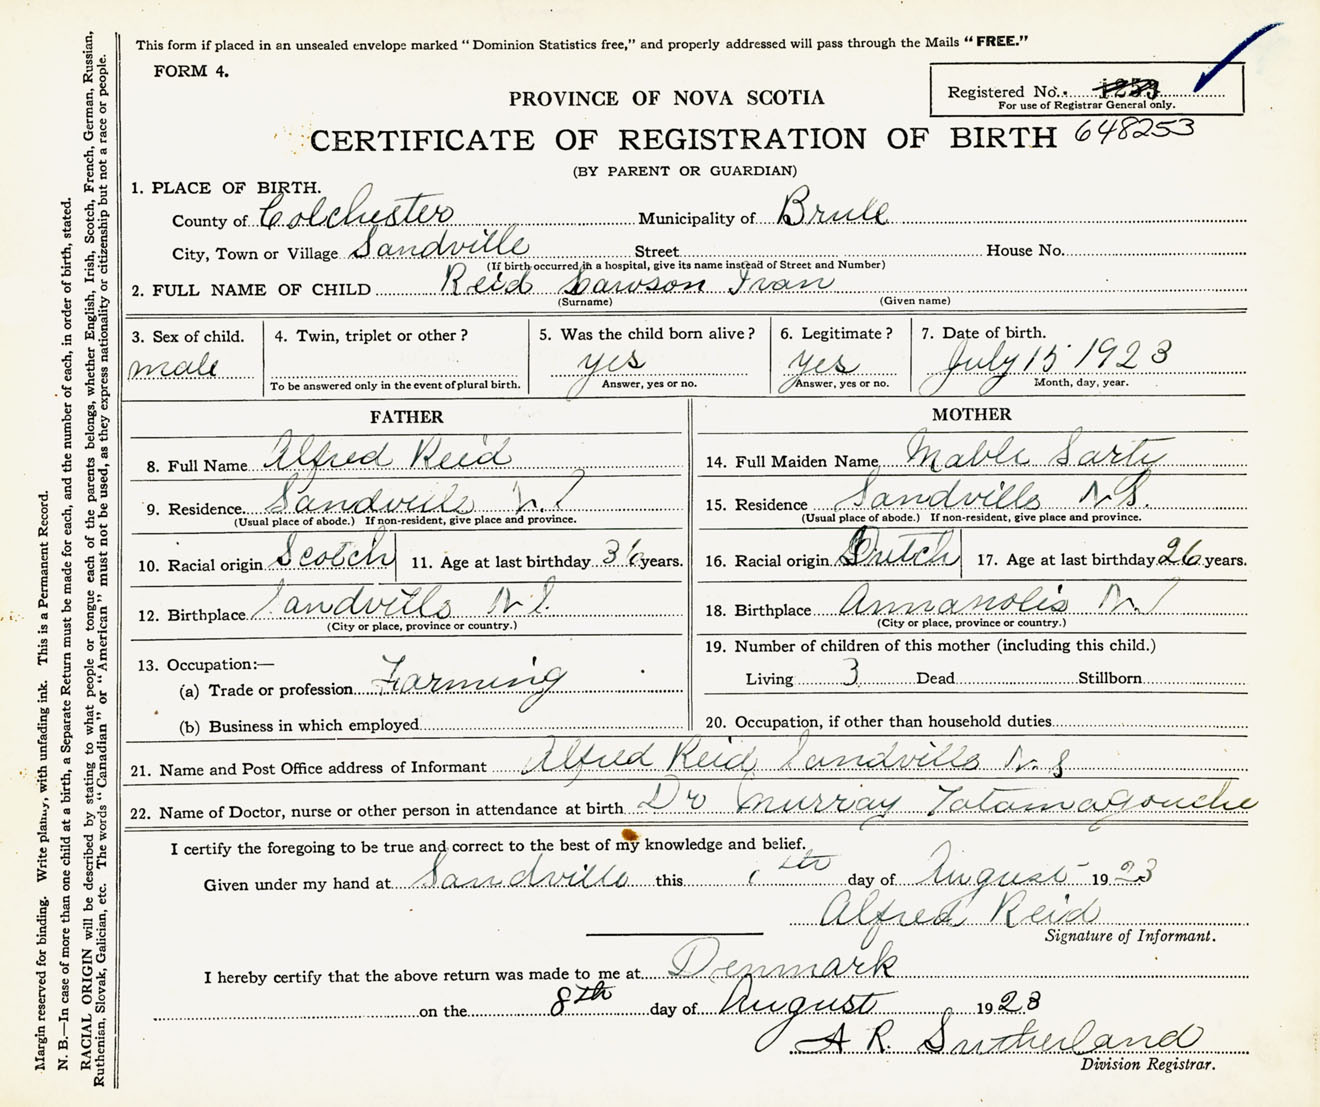 This form if placed in an unsealed envelope marked "Dominion Statistics free," and properly addressed will pass through the Mails "FREE."
FORM 4.
Registered No.
For use of Registrar General only.
PROVINCE OF NOVA SCOTIA
CERTIFICATE OF REGISTRATION OF BIRTH 648253
(BY PARENT OR GUARDIAN)
1. PLACE OF BIRTH.
County of Colchester Municipality of Brule
City, Town or Village Sandville Street House No.
(If birth occurred in a hospital, give its name instead of Street and Number)
2. FULL NAME OF CHILD Reid Lawson Ivan
(Surname) (Given name)
3. Sex of child. 4. Twin, triplet or other? 5. Was the child born alive? 6. Legitimate? 7. Date of birth.
male yes yes July 15 1923
To be answered only in the event of plural birth. Answer, yes or no. Answer, yes or no. Month, day, year.
FATHER
8. Full Name Alfred Reid
9. Residence. Sandville N.S
(Usual place of abode.) If non-resident, give place and province.
10. Racial origin Scotch 11. Age at last birthday 36 years.
12. Birthplace Sandville N.S.
(City or place, province or country.)
13. Occupation:—
(a) Trade or profession Farming
(b) Business in which employed
MOTHER
14. Full Maiden Name Mable
15. Residence Sandville N.S.
(Usual place of abode.) If non-resident, give place and province.
16. Racial origin Dutch 17. Age at last birthday 26 years.
18. Birthplace Annapolis N.S
(City or place, province or country.)
19. Number of children of this mother (including this child.)
Living 3 Dead Stillborn
20. Occupation, if other than household duties
21. Name and Post Office address of Informant Alfred Reid Sandville N.S
22. Name of Doctor, nurse or other person in attendance at birth Dr Murray Tatamagouche
I certify the foregoing to be true and correct to the best of my knowledge and belief.
Given under my hand at Sandville this th day of August 1923
Alfred Reid
Signature of Informant.
I hereby certify that the above return was made to me at Denmark
on the 8th day of August 1923
A R. Sutherland
Division Registrar.
Margin reserved for binding. Write plainly, with unfading ink. This is a Permanent Record.
N. B.—In case of more than one child at a birth, a Separate Return must be made for each, and the number of each, in order of birth, stated.
RACIAL ORIGIN will be described by stating to what people or tongue each of the parents belongs, whether English, Irish, Scotch, French, German, Russian,
Ruthenian, Slovak, Galician, etc. The words "Canadian" or "American" must not be used, as they express nationality or citizenship but not a race or people.